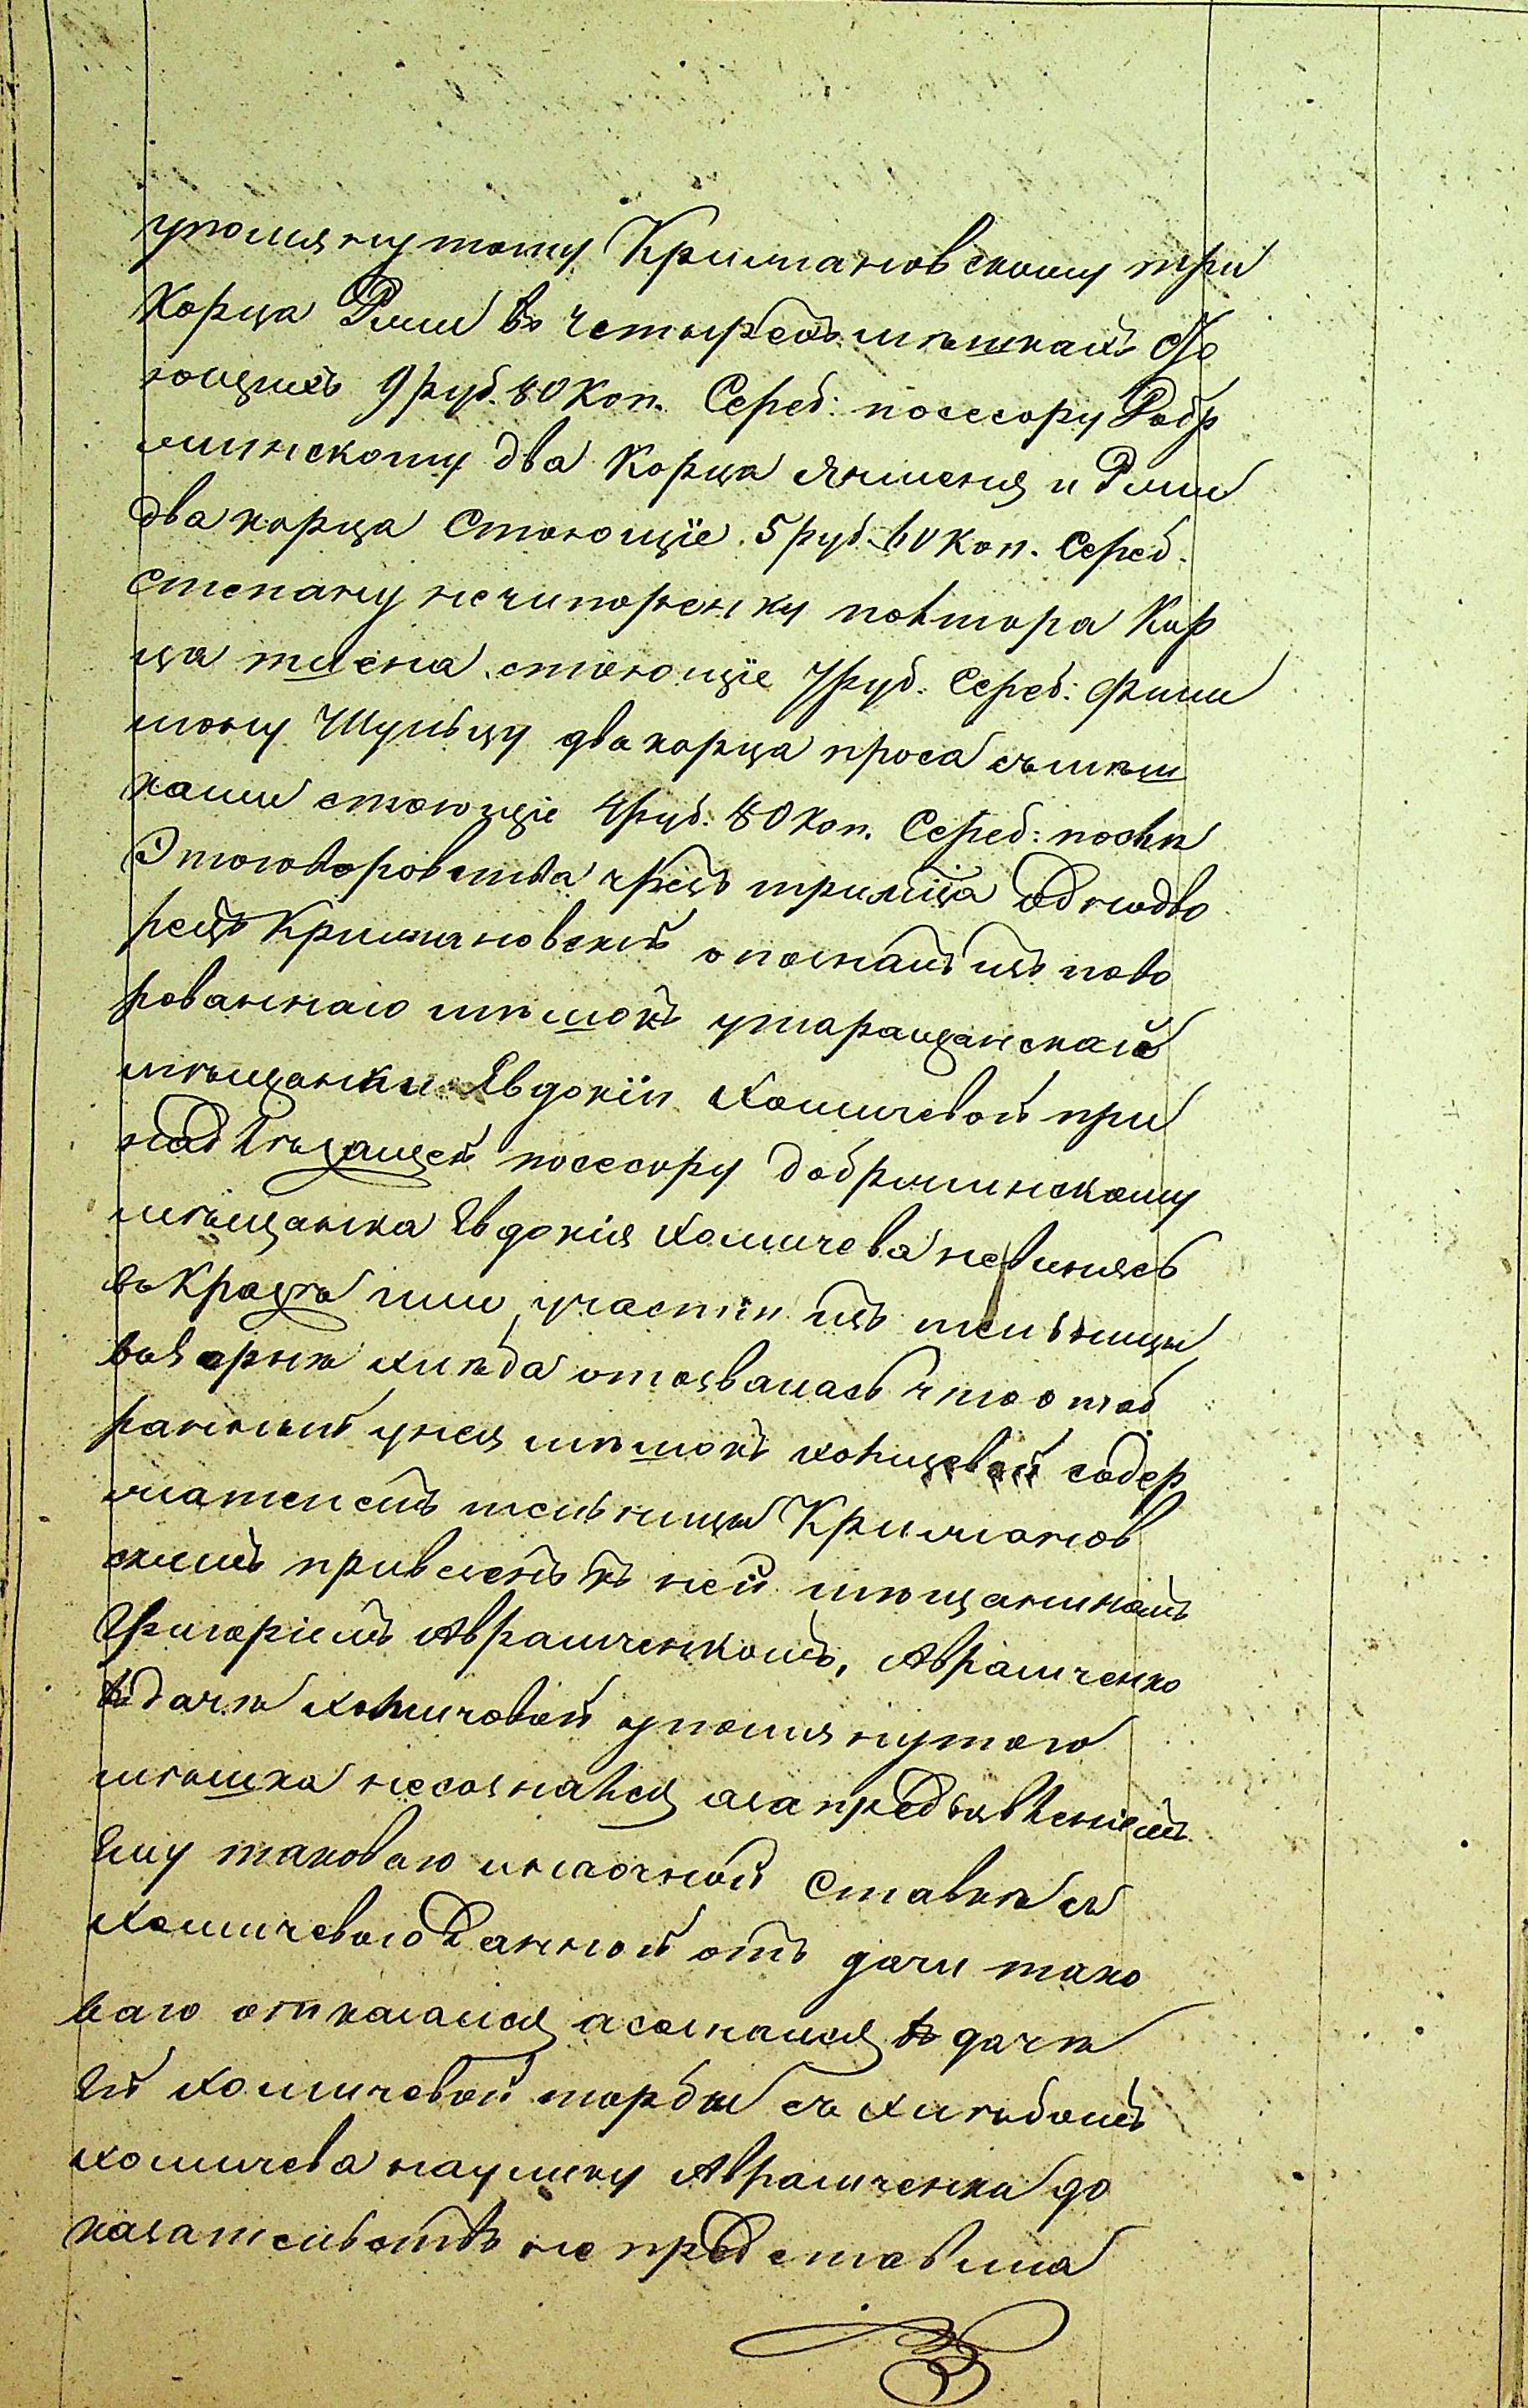 упомянутому Крижановскому три
Корца Ржи въ четырехъ мѣшкахъ сто
ющихъ 9 руб. 80 коп. Сереб: посесору Добр
жинскому два Корца Ячменя и Ржи
два корца Стоющіе 5 руб. 60 коп. Сереб.
Степану нечипоренку повтора Кор
ца пшена стоющіе 7 руб. Сереб: Фили
мону Шульцу два корца проса съ мѣш
ками стоющіе 4 руб. 80 коп. Сереб: послѣ
Этого воровства чрезъ три мца Однодво
рецъ Крижановскій опозналъ изъ пово
рованнаго мѣшокъ у таращанской
мѣщанки Евдокіи Хомичевой при
надлѣжащей посесору добржинскому
мѣщанка Евдокія Хомичева невинясь
въ Кражѣ или участіи изъ мельницы
воворѣ хлѣба отозвалась что отоб
ранный у нея мѣшокъ хомичевой содер
жателемъ мельницы Крижанов
скимъ привезенъ къ ней мѣщаниномъ
Григоріемъ Авраменкомъ, Авраменко
въ дачѣ Хомичовой упомянутого
мѣшка несознался, а за предъявленіемъ
Ему таковаго и на очной Ставкѣ съ
Хомичевою Данной отъ дачи тако
ваго отказался, а сознался въ дачѣ
Ей Хомичевой торбы съ хлѣбомъ
хомичева наулику Авраменка до
казательствъ не представила